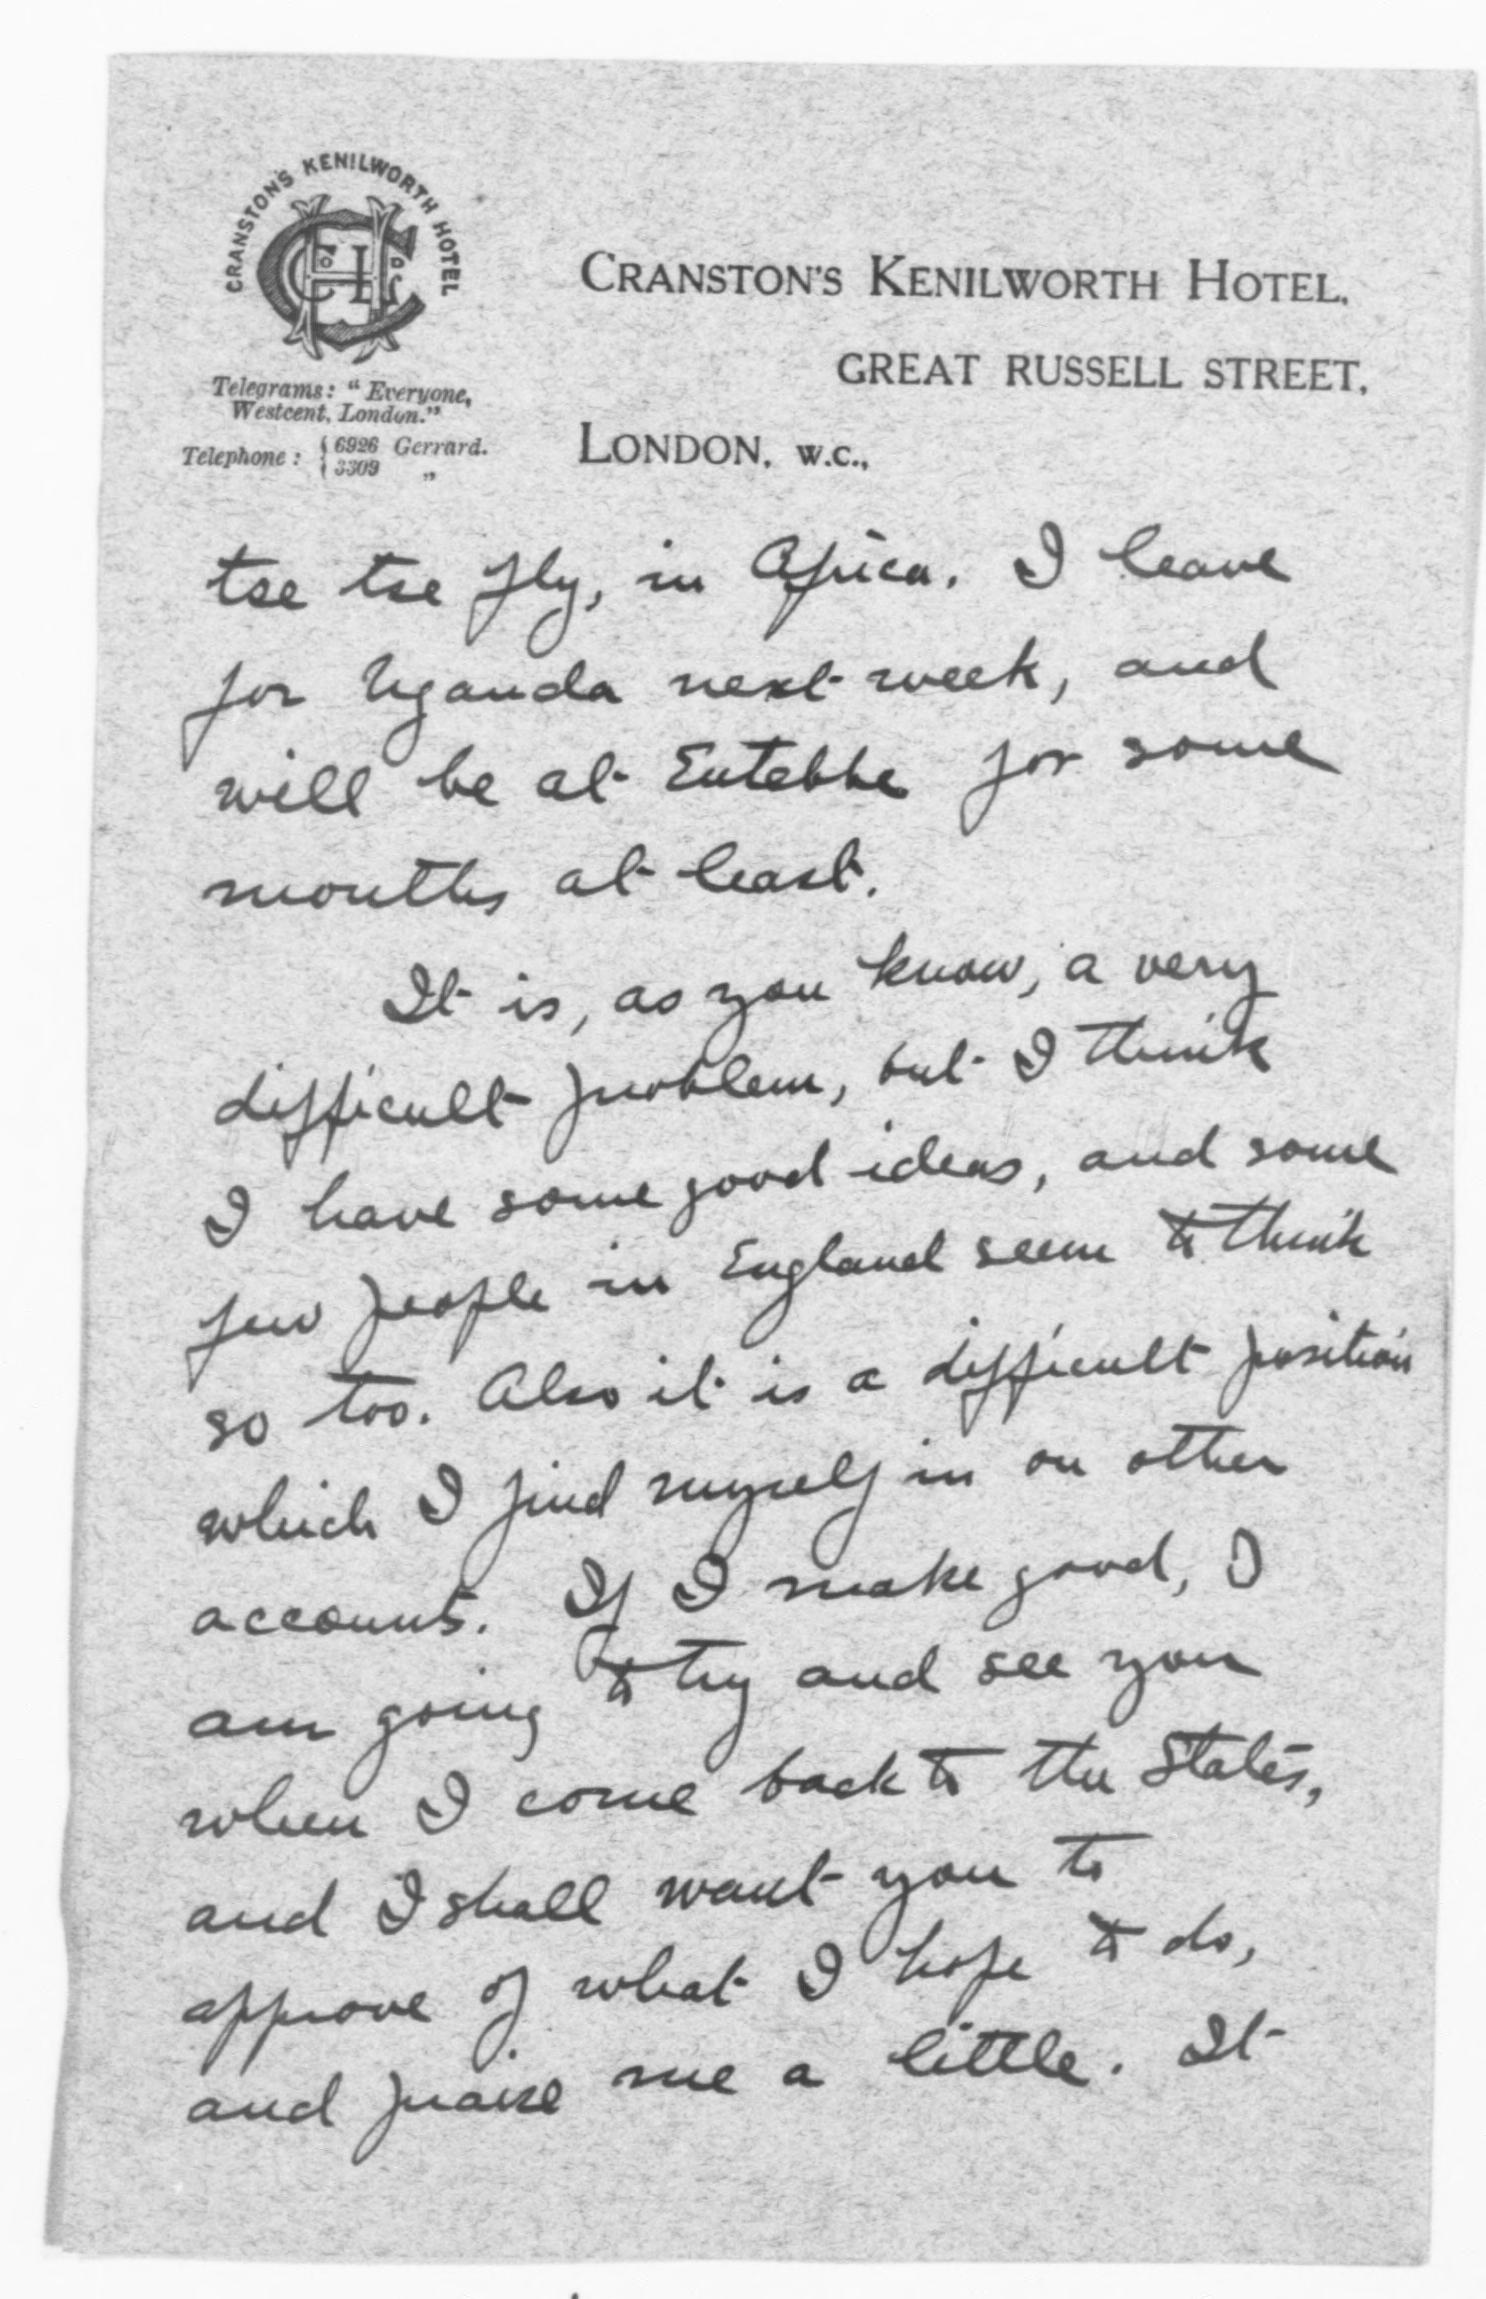 CRANSTON'S KENILWORTH HOTEL
CRANSTON'S KENILWORTH HOTEL,
GREAT RUSSELL STREET,
LONDON, W.C.,
Telegrams: "Everyone,
Westcent, London."
Telephone: { 6926 Gerrard.
{ 3309 "
tse tse fly, in Africa. I leave
for Uganda next week, and
will be at Entebbe for some
months at least.
It is, as you know, a very
difficult problem, but I think
I have some good ideas, and some
few people in England seem to think
so too. Also it is a difficult position
which I find myself in on other
accounts. If I make good, I
am going to try and see you
when I come back to the States,
and I shall want you to
approve of what I hope to do,
and praise me a little. It